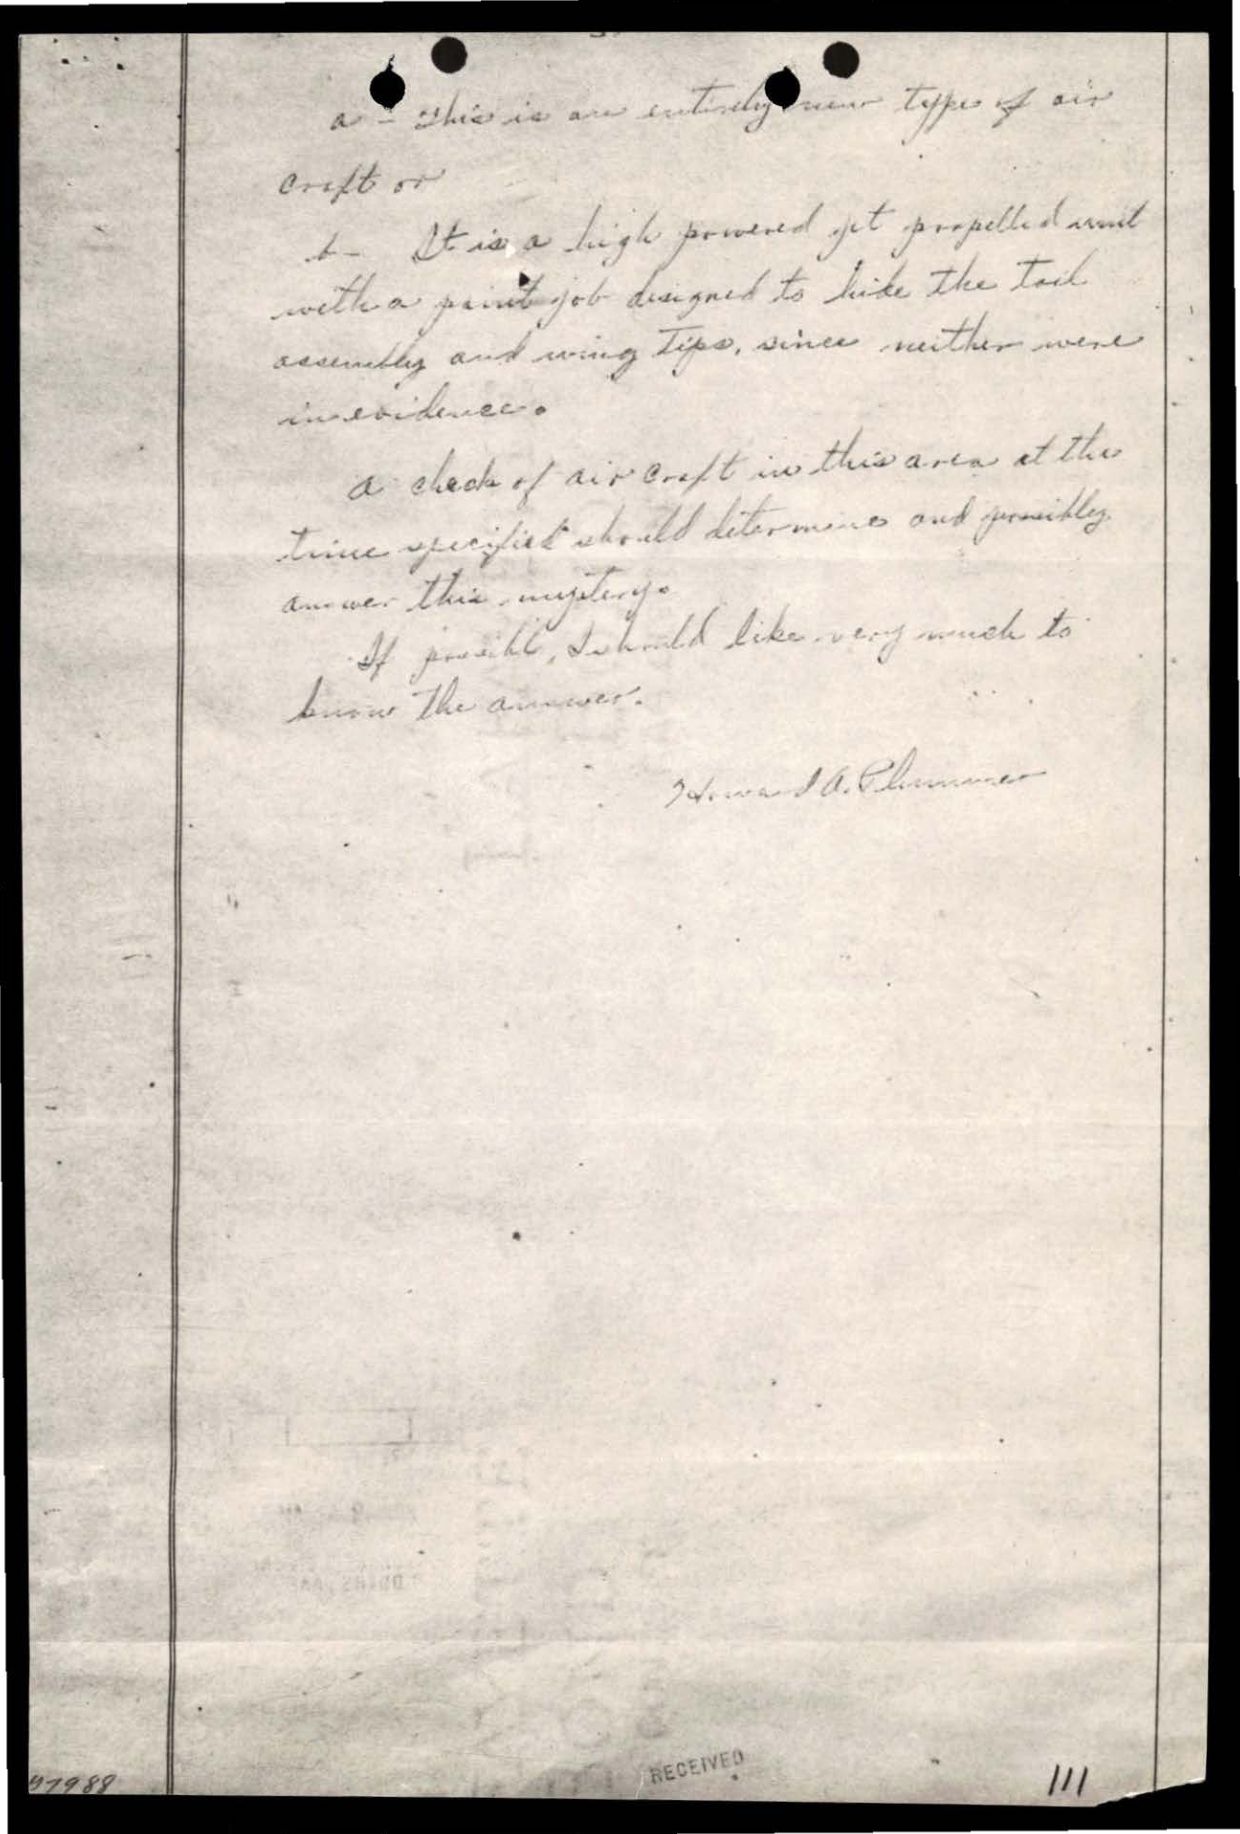 a - This is an entirely new type of air
craft or
b - It is a high powered jet propelled unit
with a paint job designed to hide the tail
assembly and wing tips, since neither were
in evidence.
A check of air craft in this area at the
time specified should determine and possibly
answer this mystery.
If possible, I should like very much to
know the answer.
Howard A. Plummer
RECEIVED
111